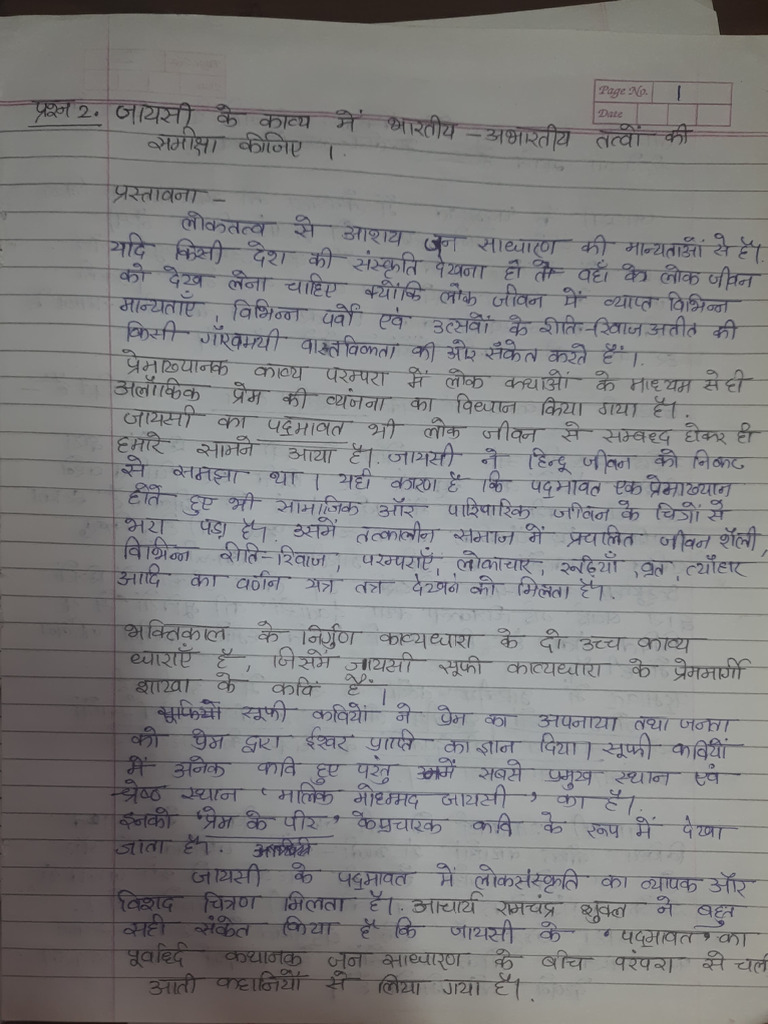 Page No. 1
Date
प्रश्न 2. जायसी के काव्य में भारतीय - अभारतीय तत्वों की
समीक्षा कीजिए ।
प्रस्तावना -
लोकतत्व से आशय जन साधारण की मान्यताओं से है।
यदि किसी देश की संस्कृति देखना हो तो वहाँ के लोक जीवन
को देख लेना चाहिए क्योंकि लोक जीवन में व्याप्त विभिन्न
मान्यताएँ, विभिन्न पर्वो एवं उत्सवों के रीति-रिवाज अतीत की
किसी गौरवमयी वास्तविकता की ओर संकेत करते हैं।
प्रेमाख्यानक काव्य परम्परा में लोक कथाओं के माध्यम से ही
अलौकिक प्रेम की व्यंजना का विधान किया गया है।
जायसी का पद्मावत भी लोक जीवन से सम्बध्द होकर ही
हमारे सामने आया है। जायसी ने हिन्दू जीवन को निकट
से समझा था । यही कारण है कि पद्मावत एक प्रेमाख्यान
होते हुए भी सामाजिक और पारिवारिक जीवन के चित्रों से
भरा पड़ा है। उसमें तत्कालीन समाज में प्रचलित जीवन शैली,
विभिन्न रीति-रिवाज, परम्पराएँ, लोकाचार, रूढ़ियाँ, व्रत, त्यौहार
आदि का वर्णन यत्र तत्र देखने को मिलता है।
भक्तिकाल के निर्गुण काव्यधारा के दो उच्च काव्य
धाराएँ है, जिसमें जायसी सूफी काव्यधारा के प्रेममार्गी
शाखा के कवि हैं।
सूफी कवियों ने प्रेम का अपनाया तथा जनता
को प्रेम द्वारा ईश्वर प्राप्ति का ज्ञान दिया। सूफी कवियों
में अनेक कवि हुए परंतु उनमें सबसे प्रमुख स्थान एवं
श्रेष्ठ स्थान 'मालिक मोहम्मद जायसी' का है।
इनको 'प्रेम के पीर' के प्रचारक कवि के रूप में देखा
जाता है।
जायसी के पद्मावत में लोकसंस्कृति का व्यापक और
विशद चित्रण मिलता है। आचार्य रामचंद्र शुक्ल ने बहुत
सही संकेत किया है कि जायसी के 'पद्मावत' का
पूर्वार्ध्द कथानक जन साधारण के बीच परंपरा से चली
आती कहानियों से लिया गया है।